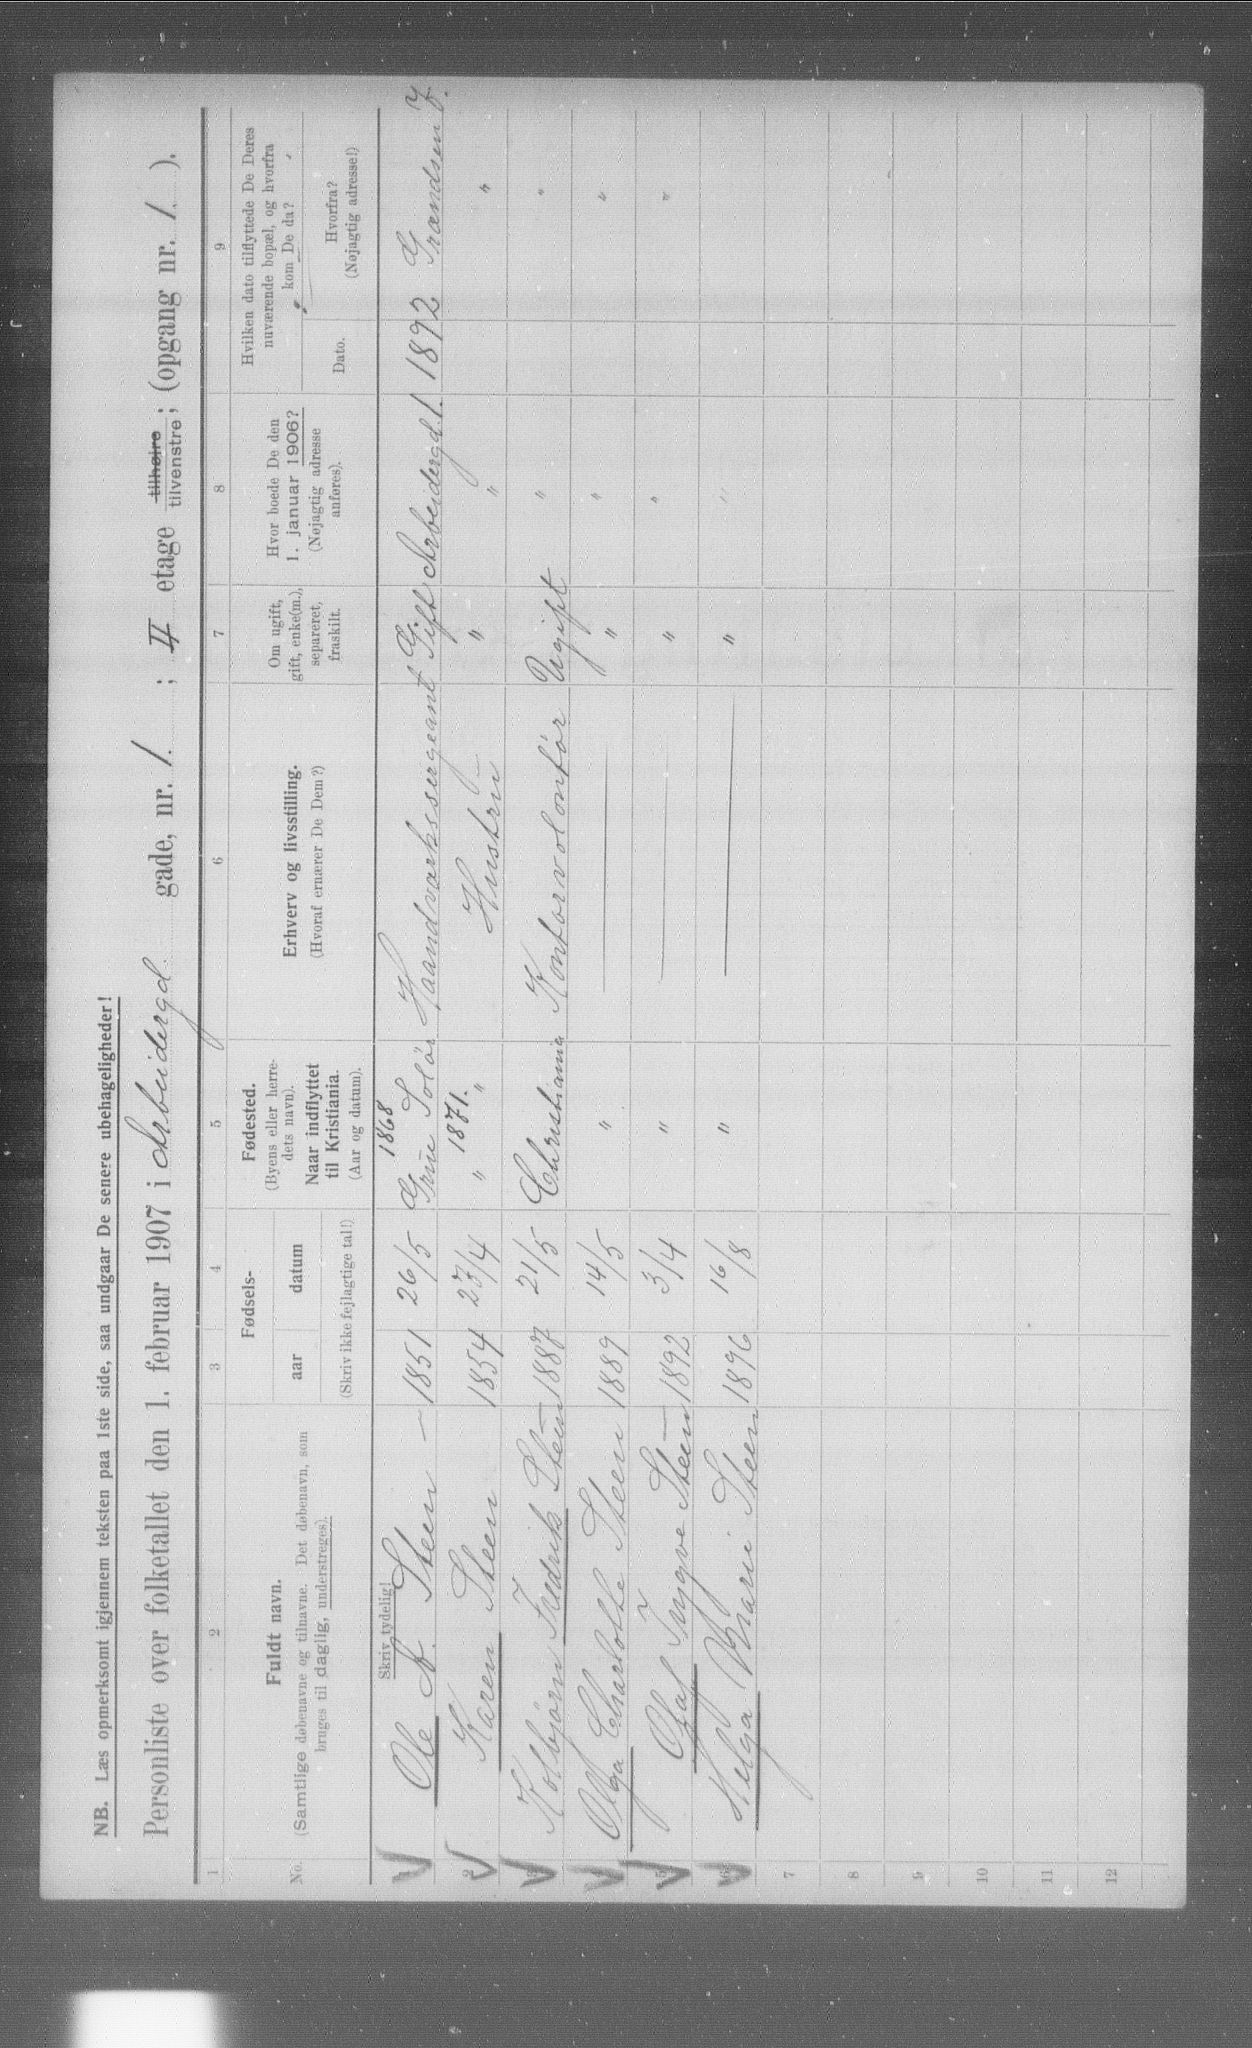 NB. Læs opmerksomt igjennem teksten paa 1ste side, saa undgaar De senere ubehageligheder!
Personliste over folketallet den 1. februar 1907 i Arbeidergd. gade, nr. 1. ; II etage tilhøire tilvenstre; (opgang nr. 1. ).
1 2 3 4 5 6 7 8 9
No.
Fuldt navn.
(Samtlige døbenavne og tilnavne. Det døbenavn, som
bruges til daglig, understreges).
Skriv tydelig!
Fødsels-
aar datum
(Skriv ikke fejlagtige tal!)
Fødested.
(Byens eller herre-
dets navn).
Naar indflyttet
til Kristiania.
(Aar og datum).
Erhverv og livsstilling.
(Hvoraf ernærer De Dem?)
Om ugift,
gift, enke(m.),
separeret,
fraskilt.
Hvor boede De den
1. januar 1906?
(Nøjagtig adresse
anføres).
Hvilken dato tilflyttede De Deres
nuværende bopæl, og hvorfra
kom De da?
Dato.
Hvorfra?
(Nøjagtig adresse!)
1 Ole A. Steen – 1851 26/5 1868 Grue Solør Haandværkssergeant Gift Arbeidergd. 1. 1892
2 Karen Steen 1854 23/4 " 1871. " Hustru " " "
3 Kolbjørn Fredrik Steen 1887 21/5 Christiania Kontorvolontør Ugift " "
4 Olga Charlotte Steen 1889 14/5 " " " "
5 Olaf Yngve Steen 1892 3/4 " " " "
6 Helga Marie Steen 1896 16/8 " " "
7
8
9
10
11
12